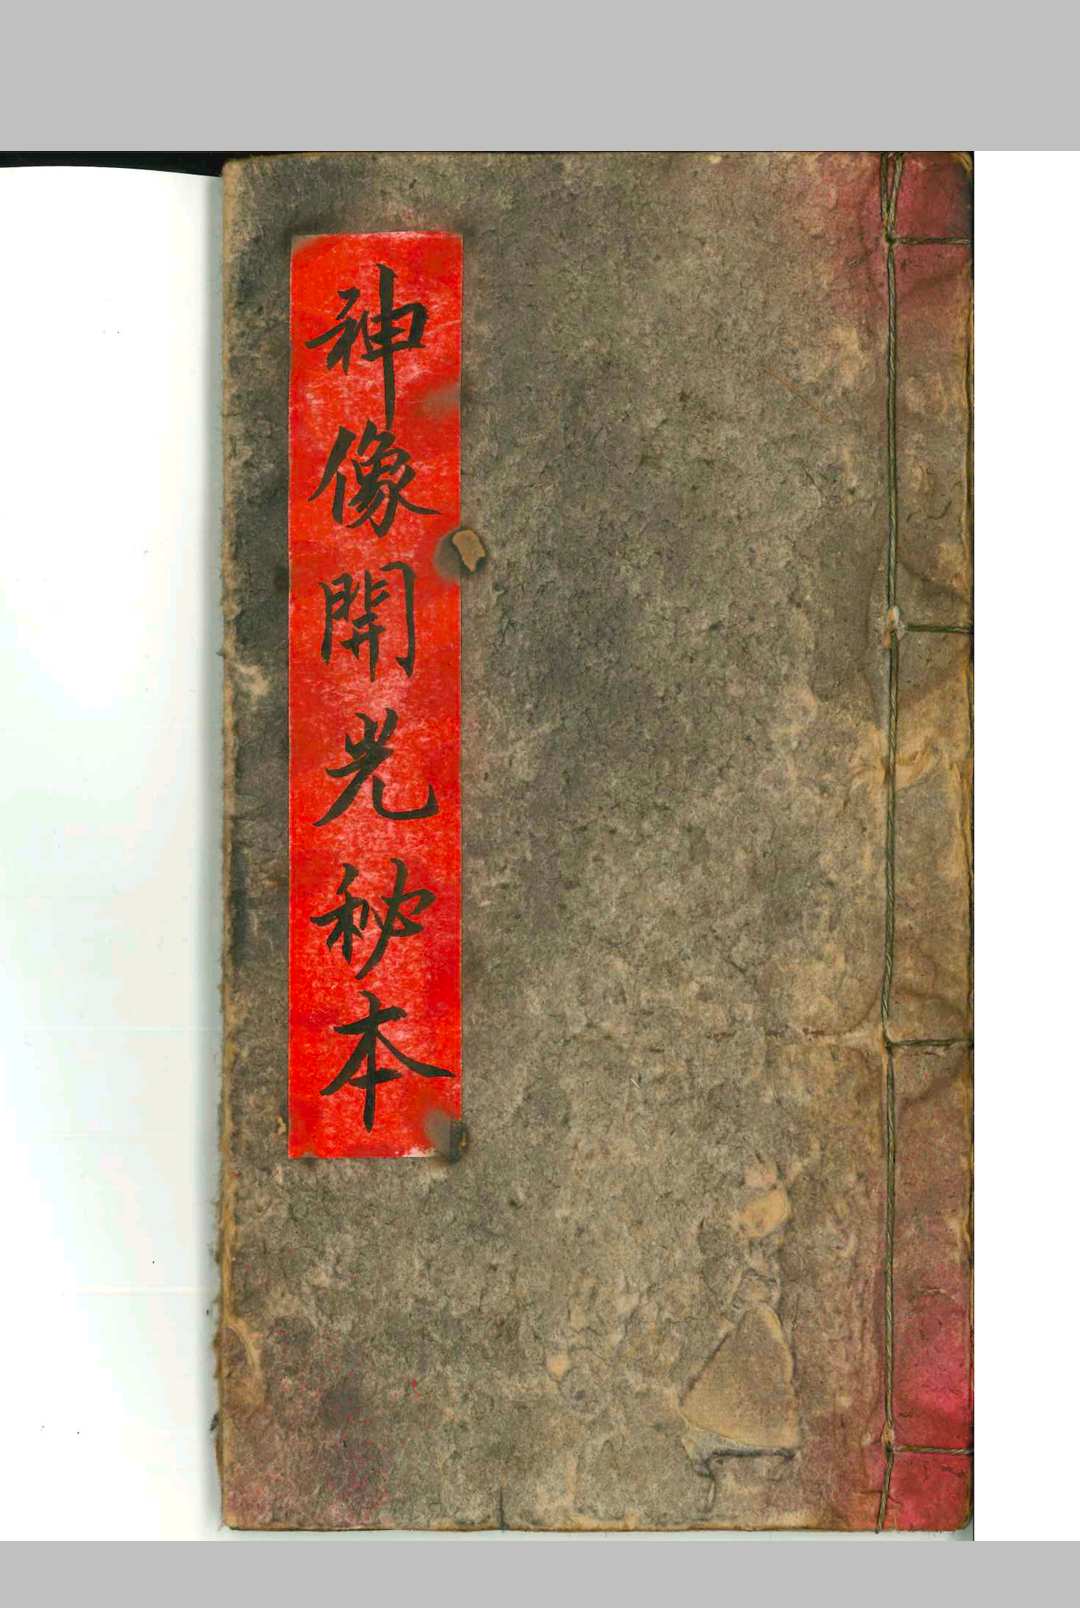 神像開光秘本